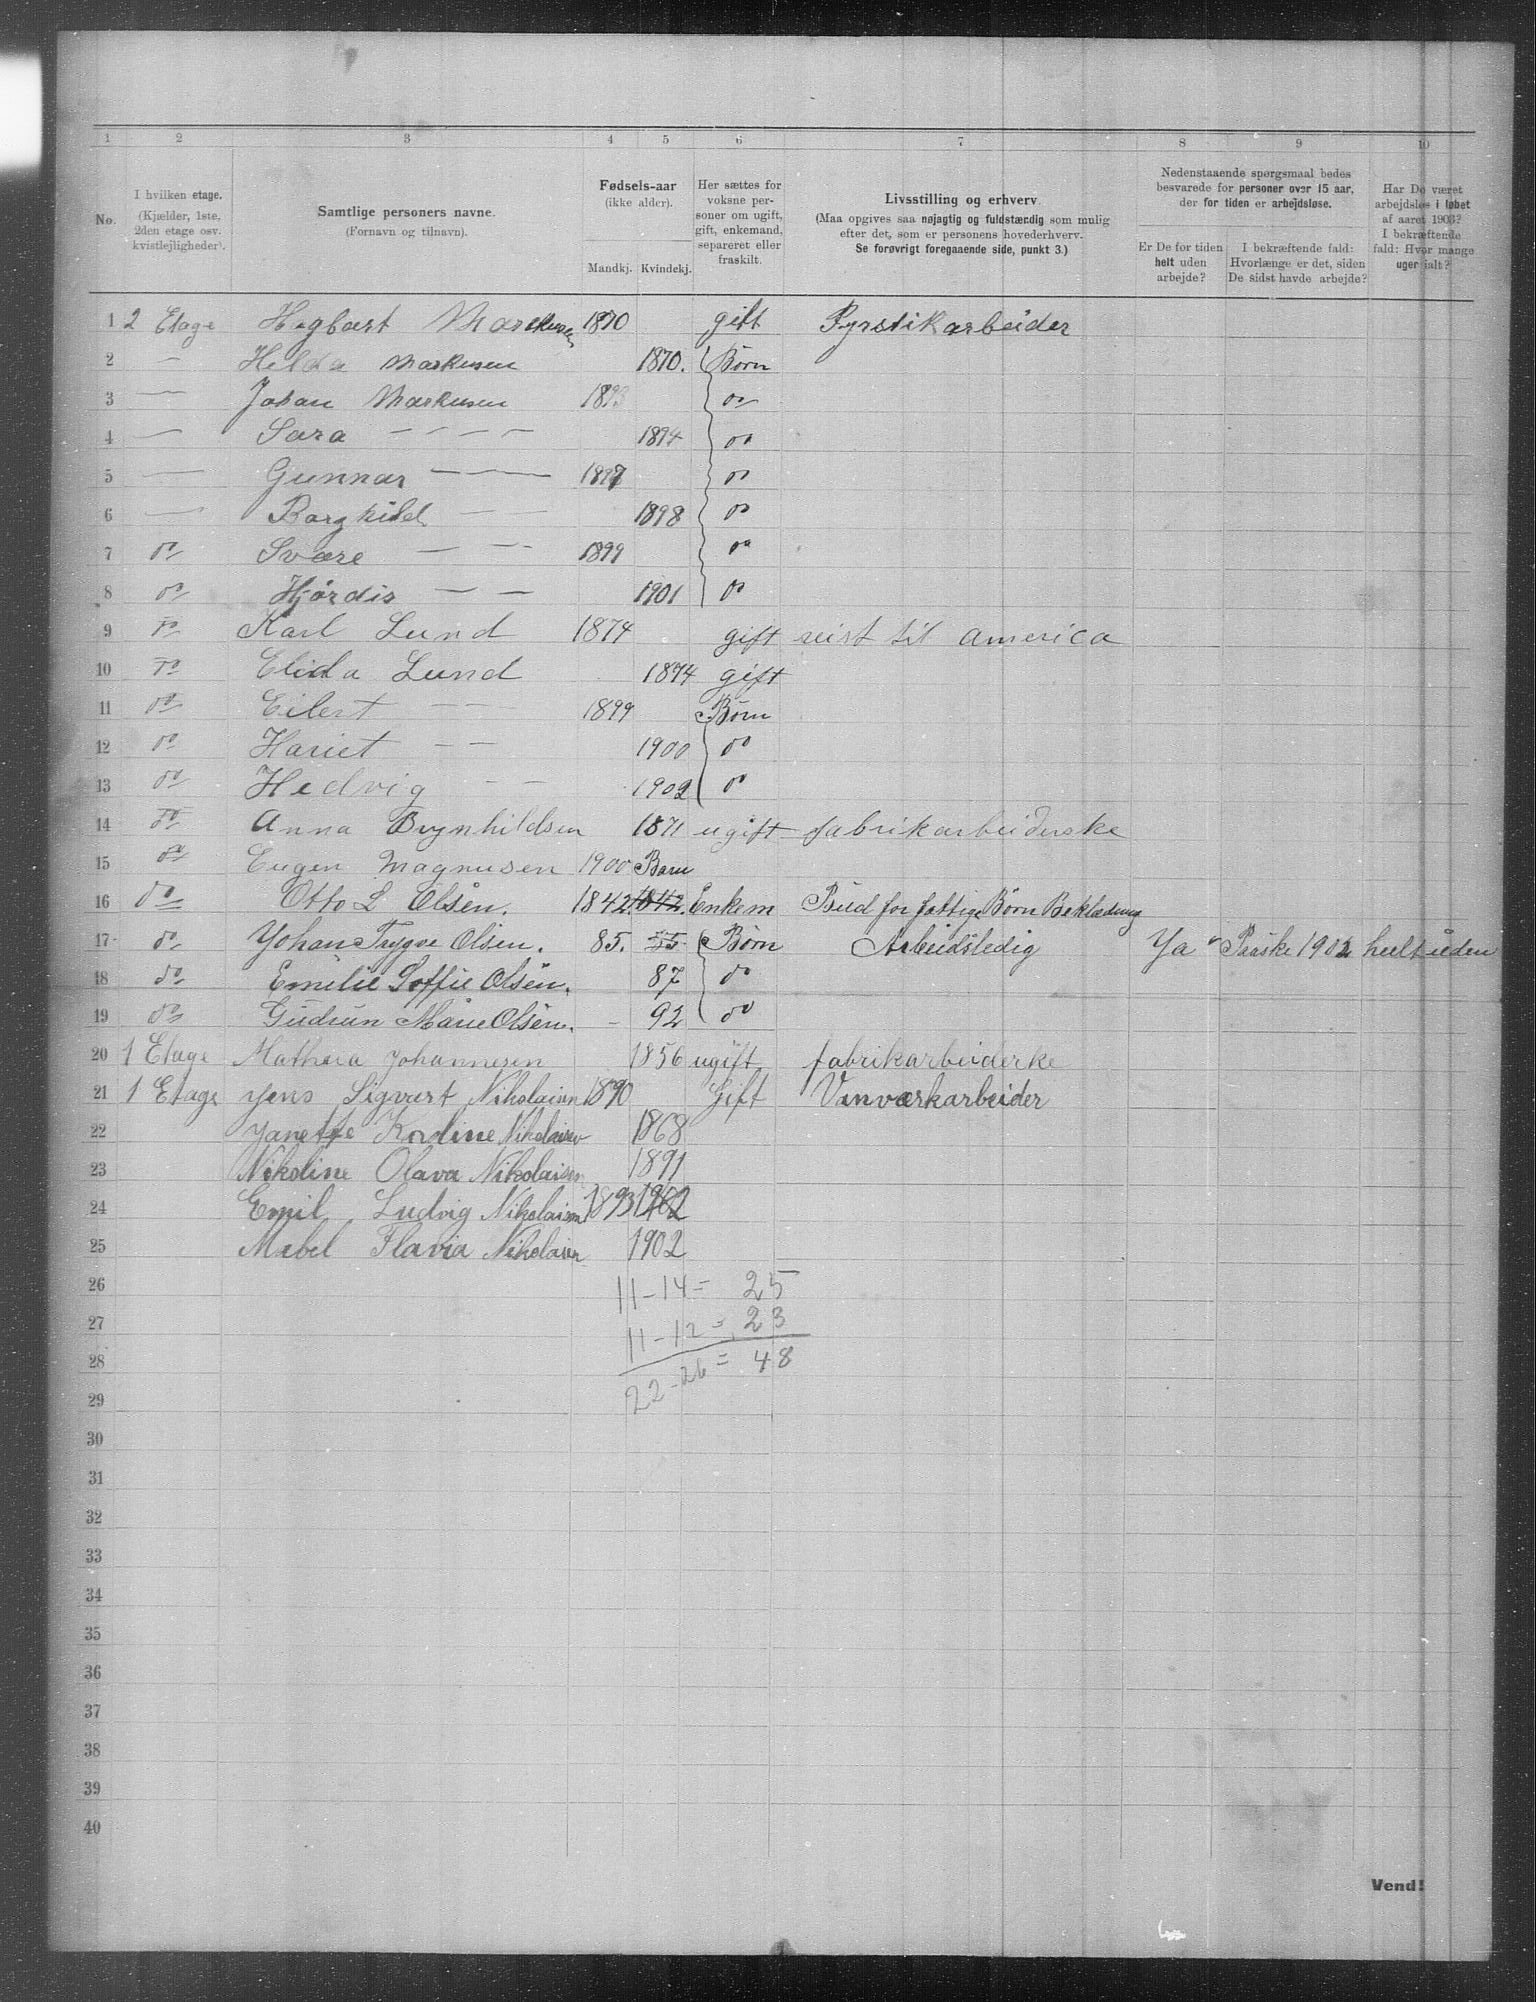 1 2 3 4 5 6 7 8 9 10
No.
I hvilken etage.
(Kjælder, 1ste,
2den etage osv.
kvistlejligheder).
Samtlige personers navne.
(Fornavn og tilnavn).
Fødsels-aar
(ikke alder).
Mandkj. Kvindekj.
Her sættes for
voksne per-
soner om ugift,
gift, enkemand,
separeret eller
fraskilt.
Livsstilling og erhverv.
(Maa opgives saa nøjagtig og fuldstændig som mulig
efter det, som er personens hovederhverv.
Se forøvrigt foregaaende side, punkt 3.)
Nedenstaaende spørgsmaal bedes
besvarede for personer over 15 aar,
der for tiden er arbejdsløse.
Er De for tiden
helt uden
arbejde?
I bekræftende fald:
Hvorlænge er det, siden
De sidst havde arbejde?
Har De været
arbejdsløs i løbet
af aaret 1903?
I bekræftende
fald: Hvor mange
uger ialt?
1 2 Etage Hagbart Markusen 1870 gift Fyrstikarbeider
2 — Helda Markusen 1870. Børn
3 — Johan Markusen 1893 do
4 — Sara — — — — 1894 do
5 — Gunnar — — — 1897 do
6 — Borghild — — 1898 do
7 do Svære — — 1899 do
8 do Hjørdis — — 1901 do
9 do Karl Lund 1874 gift reist til america
10 do Elida Lund 1874 gift
11 do Eilert — — 1899 Børn
12 do Hariet — — 1900 do
13 do Hedvig — — 1902 do
14 do Anna Brynhildsen 1871 ugift fabrikarbeiderske
15 do Eugen Magnusen 1900 Barn
16 do Otto L Olsen. 1842 1842. Enkem Bud for fattige Børn Beklædning
17 do Yohan Trygve Olsen. 85. 55 Børn Arbeidsledig Ya Paaske 1902 heelt uden
18 do Emilie Soffie Olsen. 87 do
19 do Gudrun Marie Olsen. - 92 do
20 1 Etage Mathea Johannesen 1856 ugift fabrikarbeiderke
21 1 Etage Yens Sigvart Nikolaisen 1890 Gift Vanværkarbeider
22 Yanette Kordine Nikolaisen 1868
23 Nikoline Olava Nikolaisen 1891
24 Emil Ludvig Nikolaisen 1893 1902
25 Mabel Flavia Nikolaisen 1902
26 11-14 = 25
27 11-12 = 23
28 22-26 = 48
29
30
31
32
33
34
35
36
37
38
39
40
Vend!